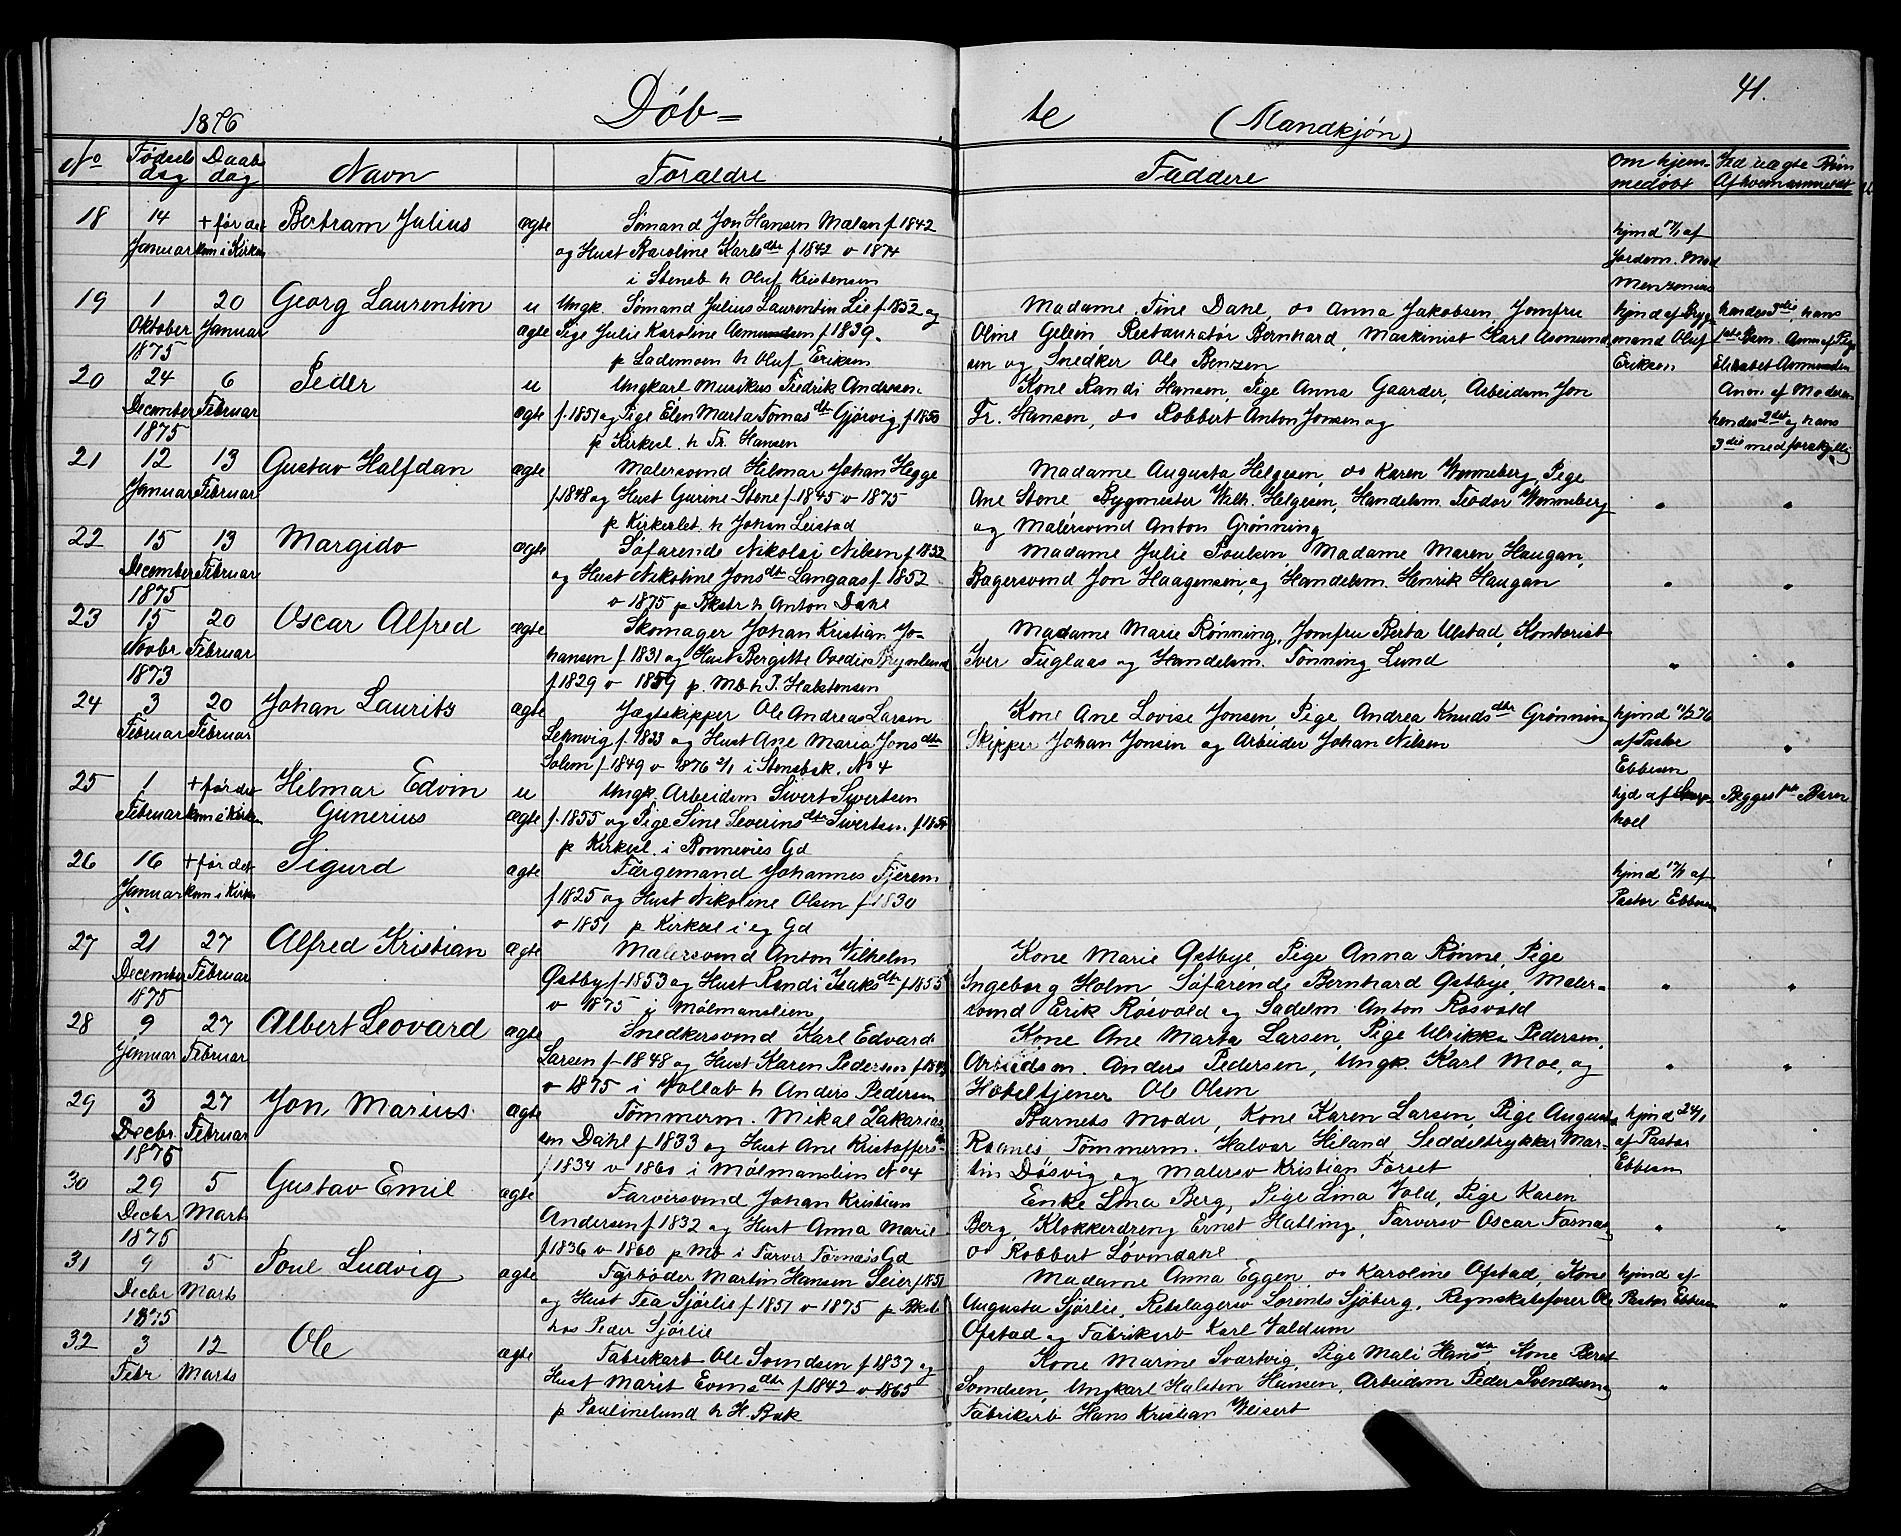 41.
1876 Døb= te (Mandkjøn)
No Fødsels dag Daabs dag Navn Forældre Faddere Om hjem- medøbt Ved uægte Børn
18 14 Januar + før det kom i Kirken Bertram Julius ægte Sømand Jon Hansen Mælan f 1842
og Hust Karoline Karlsdtr f 1842 v 1874
i Stensb h Oluf Kristensen
hjmd af Jordem. Mad
19 1 Oktober 1875 20 Januar Georg Laurentin u ægte Ungk. Sømand Julius Laurentin Lie f 1852 og
Pige Julie Karoline Asmundsen f 1839.
p Lademoen h Oluf Eriksen
Madame Tine Dahl, do Anna Jakobsen, Jomfru
Oline Gelein Restauratør Bernhard, Maskinist Karl Asmund
sen og Snedker Ole Bentzen
hjmd af Byg- mand Oluf Eriksen
hendes 3die, hans 1ste Barn. Anm af Pige Elisabet Asmundsen
20 24 December 1875 6 Februar Peder u ægte Ungkarl Musikus Fredrik Andresen
f. 1851 og Pige Elen Marta Tomasdtr Gjørvig f 1850
p Kirkesl. h Fr. Hansen
Kone Randi Hansen, Pige Anna Gaarder, Arbeidsm Jon
Fr. Hansen, do Robbert Anton Jonsen og
Anm. af Moderen hendes 2det og hans 3die med forskjellig
21 12 Januar 13 Februar Gustav Halfdan ægte Malersvend Hilmar Johan Hegge
f 1848 og Hust Gurine Stene f 1845 v 1875
p Kirkeslet. h Johan Leistad
Madame Augusta Helgesen, do Karen Wenneberg, Pige
Ane Stone Bygmester Wilh. Helgesen, Handelsm. Teodor Wenneberg
og Malersvend Anton Grønning
22 15 December 1875 13 Februar Margido ægte Søfarende Nikolai Nilsen f 1852
og Hust Nikoline Jonsdtr Langaas f 1852
v 1875 p Bkstr h Anton Dahl
Madame Julie Poulsen, Madame Maren Haugan,
Bagersvend Jon Haagensen, og Handelsm. Henrik Haugan
23 15 Novbr 1873 20 Februar Oscar Alfred ægte Skomager Johan Kristian Jo-
hansen f 1831 og Hust Bergitte Brynlund
f 1829 v 1859 p. Mb h P. Halstensen
Madame Marie Rønning, Jomfru Berta Ulstad, Kontorist
Iver Fuglaas og Handelsm. Tonning Lund
24 3 Februar 20 Februar Johan Laurits ægte Jægtskipper Ole Andreas Larsen
Lehnvig f 1833 og Hust Ane Maria Jonsdtr
Solem f 1849 v 1876 2/1 i Stensbak. No 4
Kone Ane Lovise Jonsen, Pige Andrea Knudsdtr Grønning
Skipper Johan Jonsen og Arbeider Johan Nilsen
hjmd af Pastor Ebbesen
25 1 Februar + før det kom i Kirken Hilmar Edvin Gunerius u ægte Ungk. Arbeidsm Sivert Sivertsen
f. 1855 og Pige Sine Severinsdtr Sivertsen. f 1850
p Kirkesl. i Rønnevies Gd
Begges 1ste Barn
26 16 Januar + før det kom i Kirken Sigurd ægte Færgemand Johannes Fjerem
f 1825 og Hust Nikoline Olsen f 1830
v 1851 p Kirkesl i eg Gd
hjmd 17/1 af Pastor Ebbesen
27 21 December 1875 27 Februar Alfred Kristian ægte Malersvend Anton Vilhelm
Østby f 1853 og Hust Randi Isaksdtr f 1855
v 1875 i Mølmanslien
Kone Marie Østbye, Pige Anna Rønne, Pige
Ingeborg Holm Søfarende Bernhard Østbye, Maler-
svend Erik Røsvold og Sadelm Anton Røsvold
28 9 Januar 27 Februar Albert Leovard ægte Snedkersvend Karl Edvard
Larsen f 1848 og Hust Karen Pedersen
v 1875 i Vollab h Anders Pedersen
Kone Ane Marta Larsen, Pige Ulrikka Pedersen,
Arbeidsm. Anders Pedersen, Ungk. Karl Moe, og
Hoteltjener Ole Olsen
29 3 Decbr 1875 27 Februar Jon Marius ægte Tømmerm. Mikal Zakarias-
sen Dahl f 1833 og Hust Ane Kristoffers-
f 1834 v 1860 i Mølmanslien No 4
Barnets Moder, Kone Karen Larsen, Pige Augusta
Raanes Tømmerm. Halvor Hiland Seddeltrykker Mar-
tin Døsvig og Malersv Kristian Forset
hjmd 24/1 af Pastor Ebbesen
30 29 Decbr 1875 5 Marts Gustav Emil ægte Farversvend Johan Kristian
Andersen f 1832 og Hust Anna Marie
f 1836 v 1860 p Mb i Farver Tornæs Gd
Enke Lina Berg, Pige Lina Vold, Pige Karen
Berg, Klokkerdreng Ernst Hatling, Farversv Oscar Tornæs
do Robbert Løvendahl
31 9 Decbr 1875 5 Marts Poul Ludvig ægte Martin Hansen Seier f 1851
og Hust Tea Sjørlie f 1851 v 1875 p Bkst
hos Peder Sjørlie
Madame Anna Eggen, do Karoline Opstad, Kone
Augusta Sjørlie, Rebslagersv Lorents Sjøberg, Regnskabsfører Ole
Opstad og Fabrikarb Karl Valdum
hjmd af Pastor Ebbesen
32 3 Febr 12 Marts Ole ægte Fabrikarb. Ole Svendsen f 1837 og
Hust Marit Evensdtr f 1842 v 1865
p Paulinelund h H. Bak
Kone Marine Svartvig, Pige Mali Hansdtr, Kone Beret
Svendsen, Ungkarl Halsten Hansen, Arbeidsm Peder Svendsen og
Fabrikarb Hans Kristian Weisert